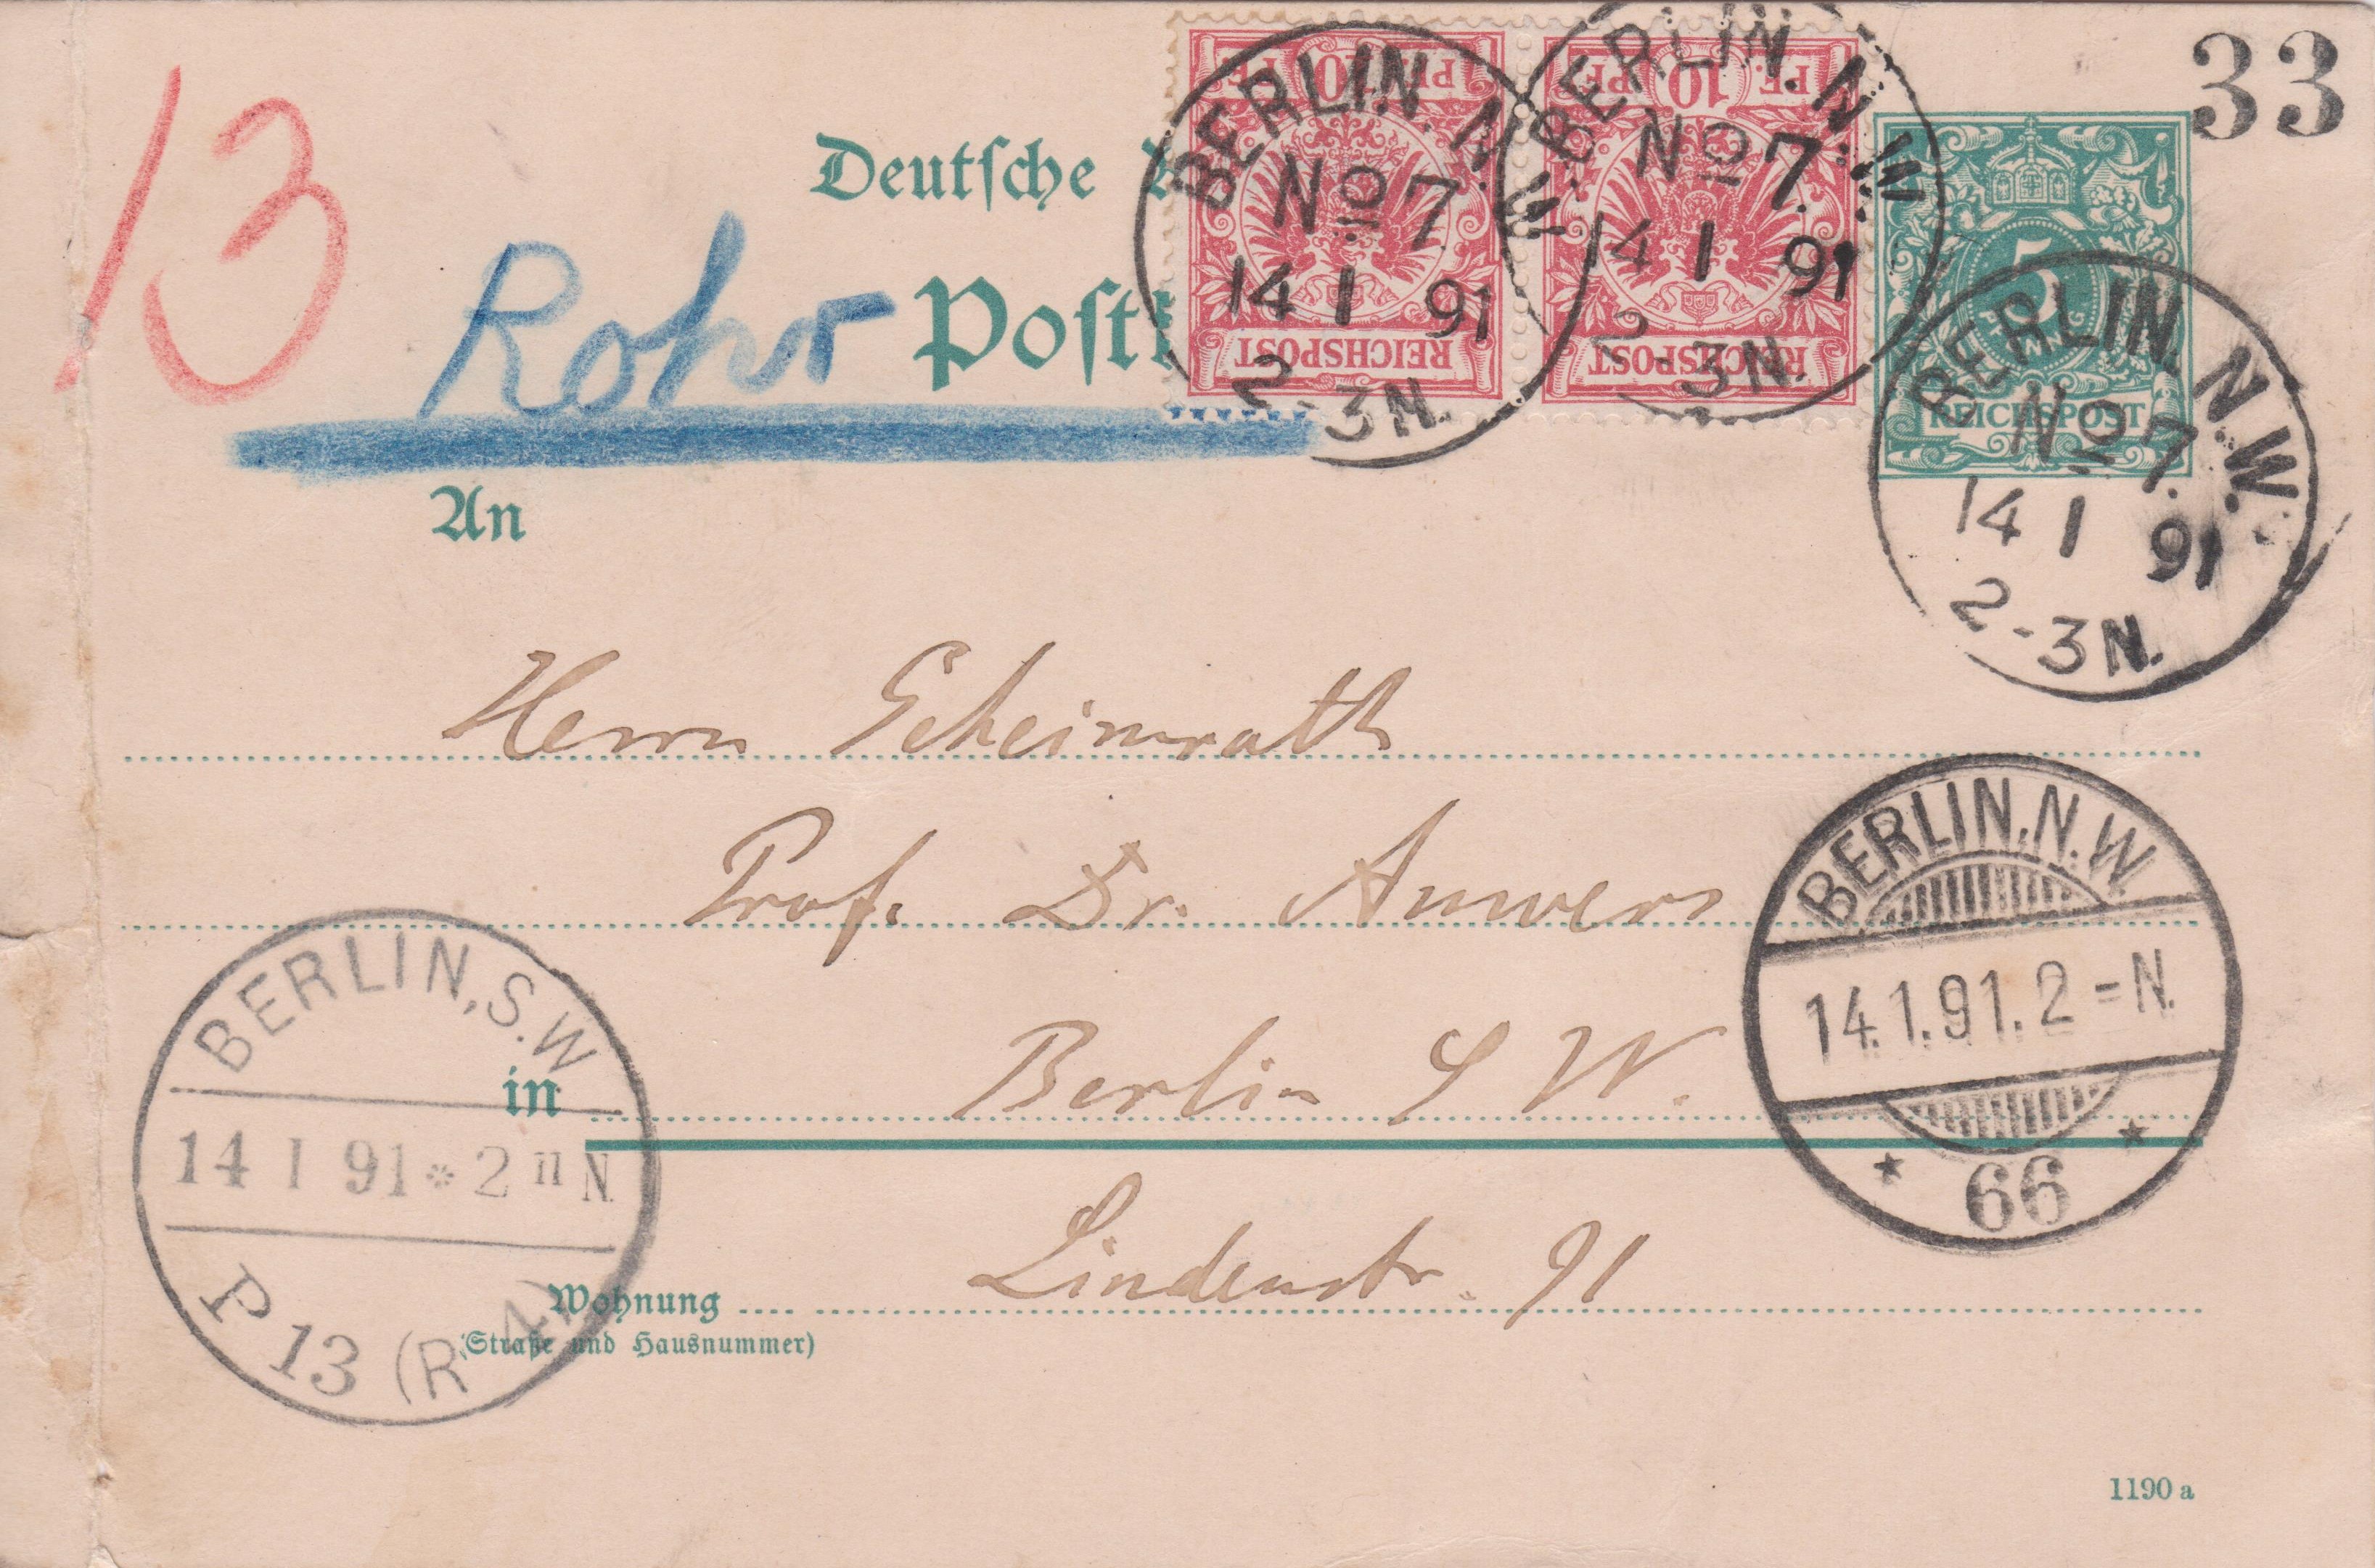 33
13
Deutsche
Rohr
Post
PF. 10 PF.
REICHSPOST
PF. 10 PF.
REICHSPOST
5
PFENNIG
REICHSPOST
BERLIN. N.W.
No 7.
14 1 91
2-3N.
BERLIN. N.W.
No 7.
14 1 91
2-3N.
BERLIN. N.W.
No 7.
14 1 91
2-3N.
An
Herrn Geheimrath
Prof. Dr. Auwers
in Berlin S W.
Wohnung Lindenstr. 91
(Straße und Hausnummer)
BERLIN, N.W
14.1.91. 2 = N.
* 66 *
BERLIN, S.W
14 1 91 * 2 II N.
P 13 (R 4)
1190 a